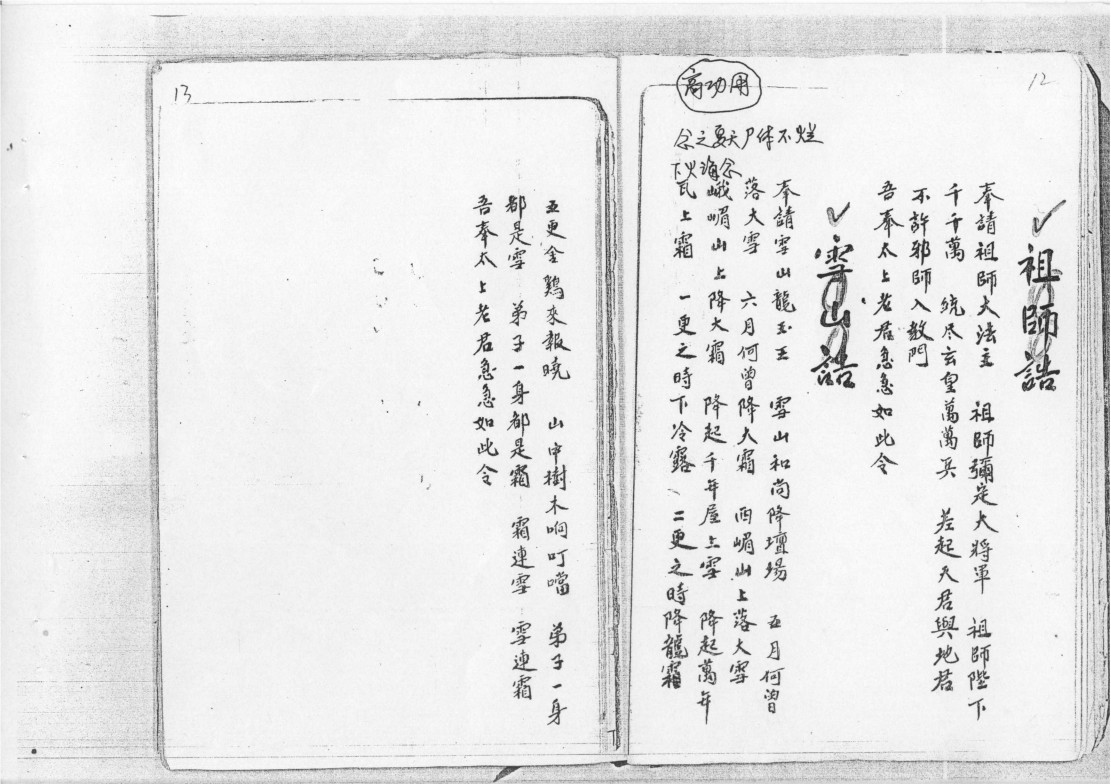 12
祖師誥
奉請祖師大法主 祖師彌定大將軍 祖師陛下
千千萬 統尽玄皇萬萬兵 差起天君與地君
不許邪師入教門
吾奉太上老君急急如此令
雪山誥
奉請雪山龍玉王 雪山和尚降壇場 五月何曾
落大雪 六月何曾降大霜 西嵋山上落大雪
峨嵋山上降大霜 降起千年屋上雪 降起萬年
瓦上霜 一更之時下冷露 二更之時降龍霜
高功用
念之夏天尸体不烂
下火海念
13
五更金鷄來報曉 山中樹木响叮噹 弟子一身
都是雪 弟子一身都是霜 霜連雪 雪連霜
吾奉太上老君急急如此令